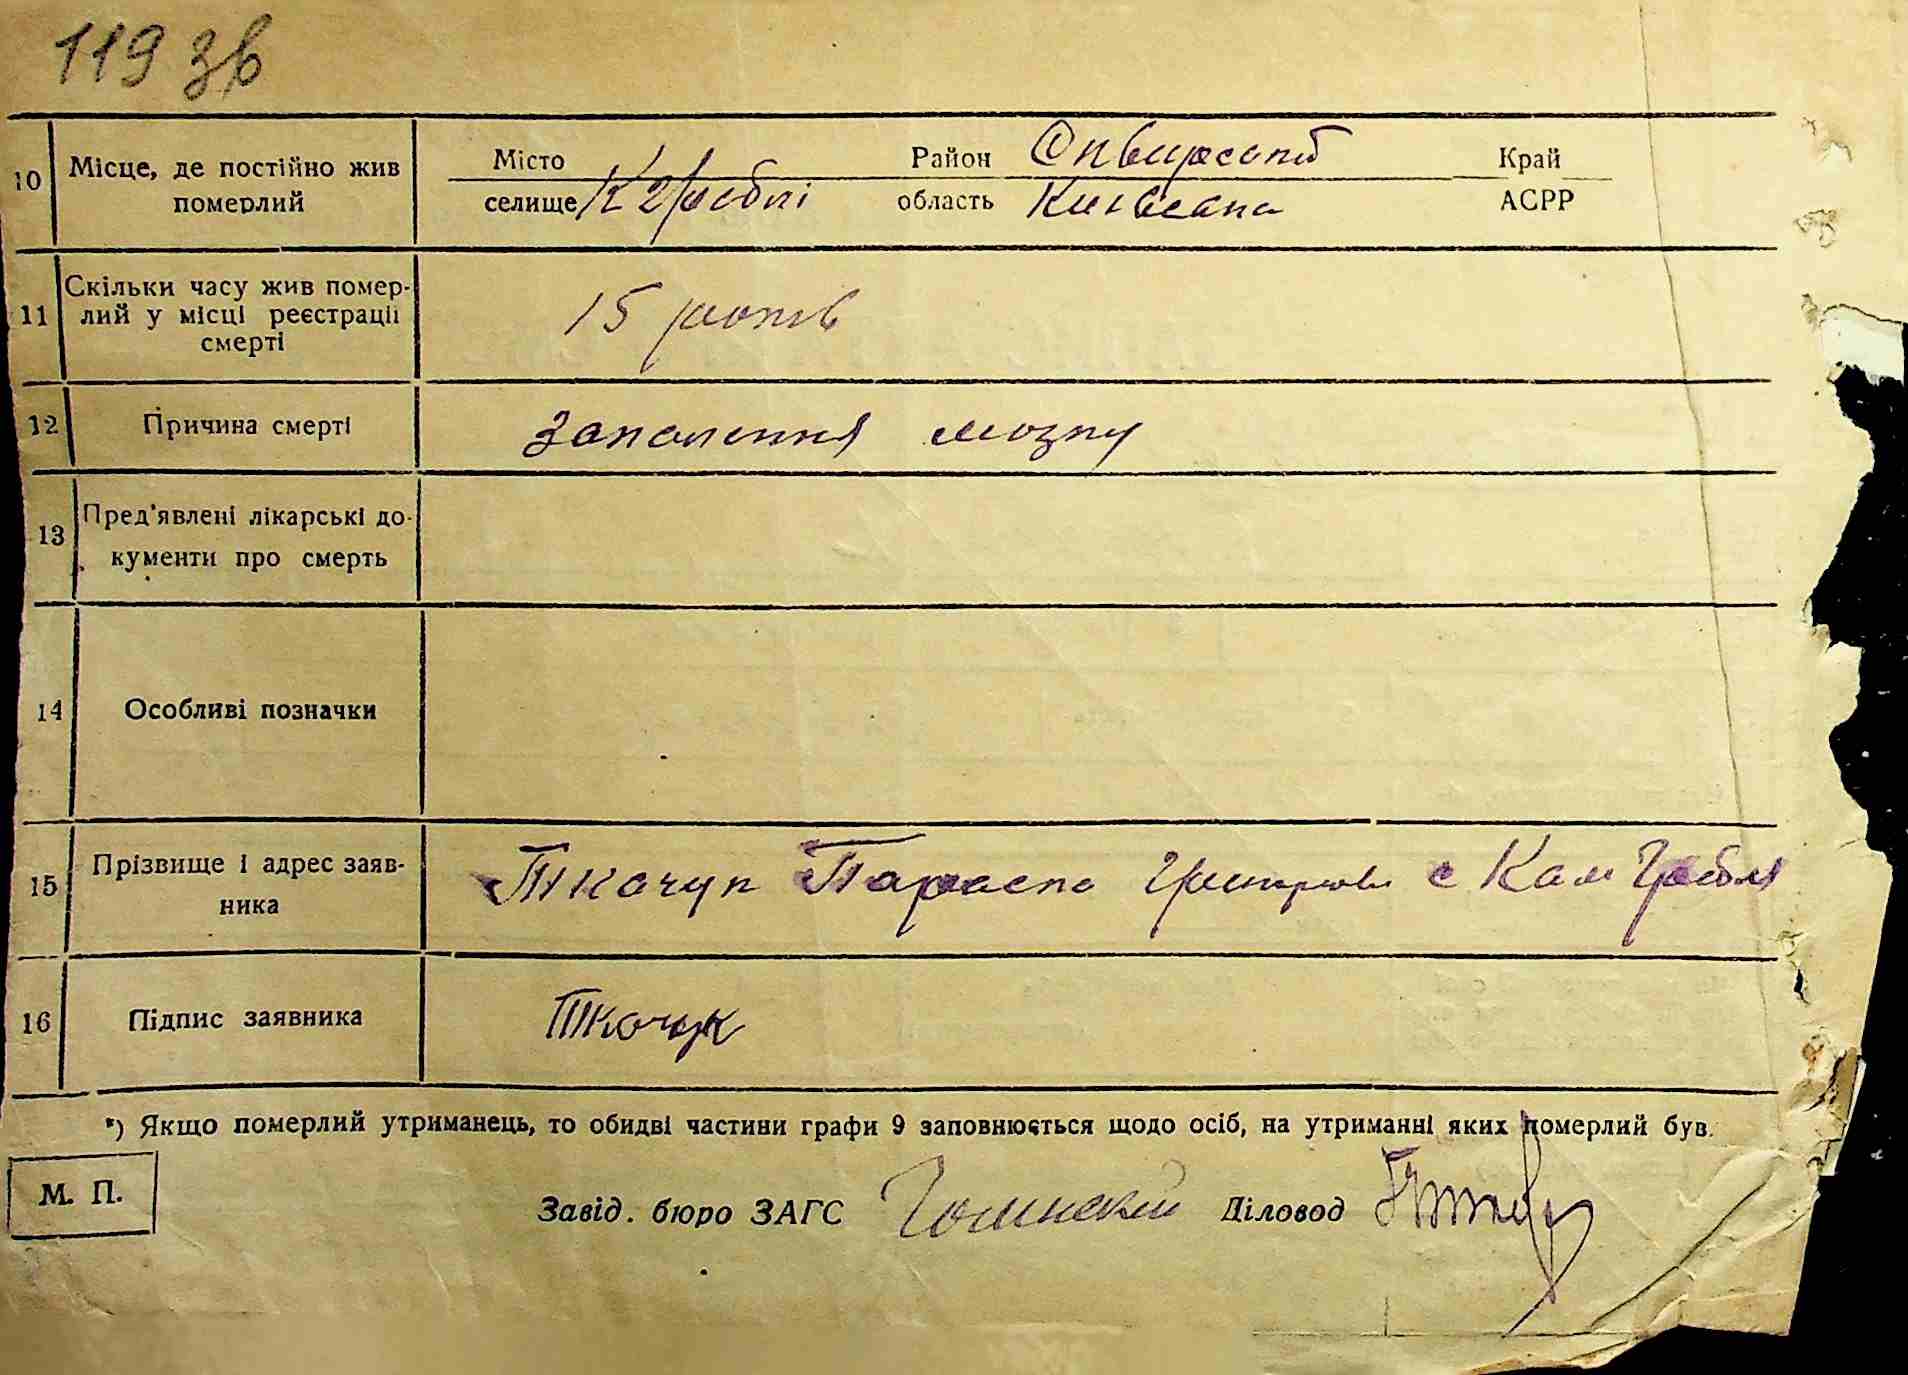 119 зв
10 Місце, де постійно жив померлий
Місто
селище К Греблі
Район Сквирський
область Київська
Край
АСРР
11 Скільки часу жив помер-
лий у місці реєстрації
смерті
15 років
12 Причина смерті
Запалення мозку
13 Пред'явлені лікарські до-
кументи про смерть
14 Особливі позначки
15 Прізвище і адрес заяв-
ника
Ткачук Параска с Кам Гребля
16 Підпис заявника
Ткачук
*) Якщо померлий утриманець, то обидві частини графи 9 заповнюється щодо осіб, на утриманні яких померлий був.
М. П.
Завід. бюро ЗАГС Діловод